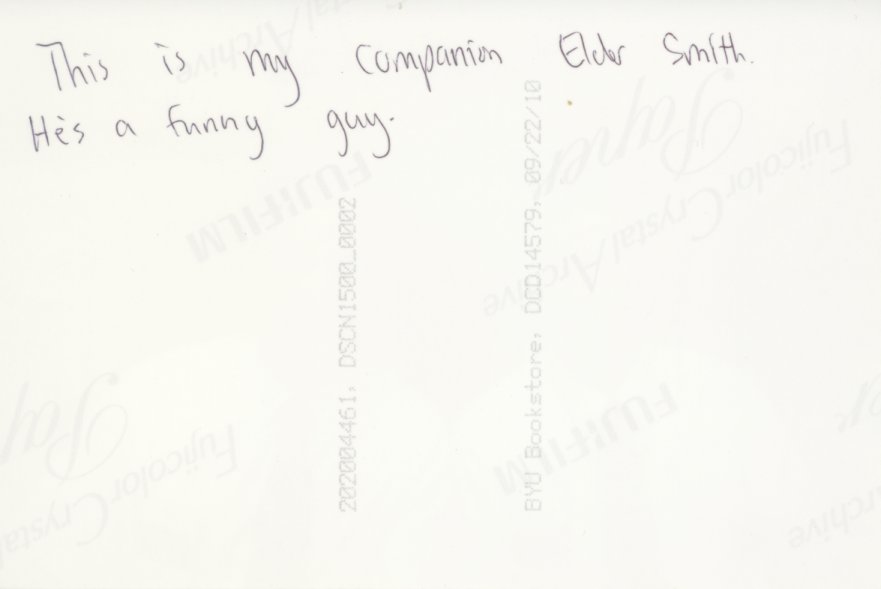 This is my companion Elder Smith.
He's a funny guy.
2020004461, DSCN1500_0002
BYU Bookstore, DCD14579, 09/22/10
FUJIFILM
Fujicolor Crystal Archive
Paper
FUJIFILM
Fujicolor Crystal
Paper
Crystal Archive
Archive